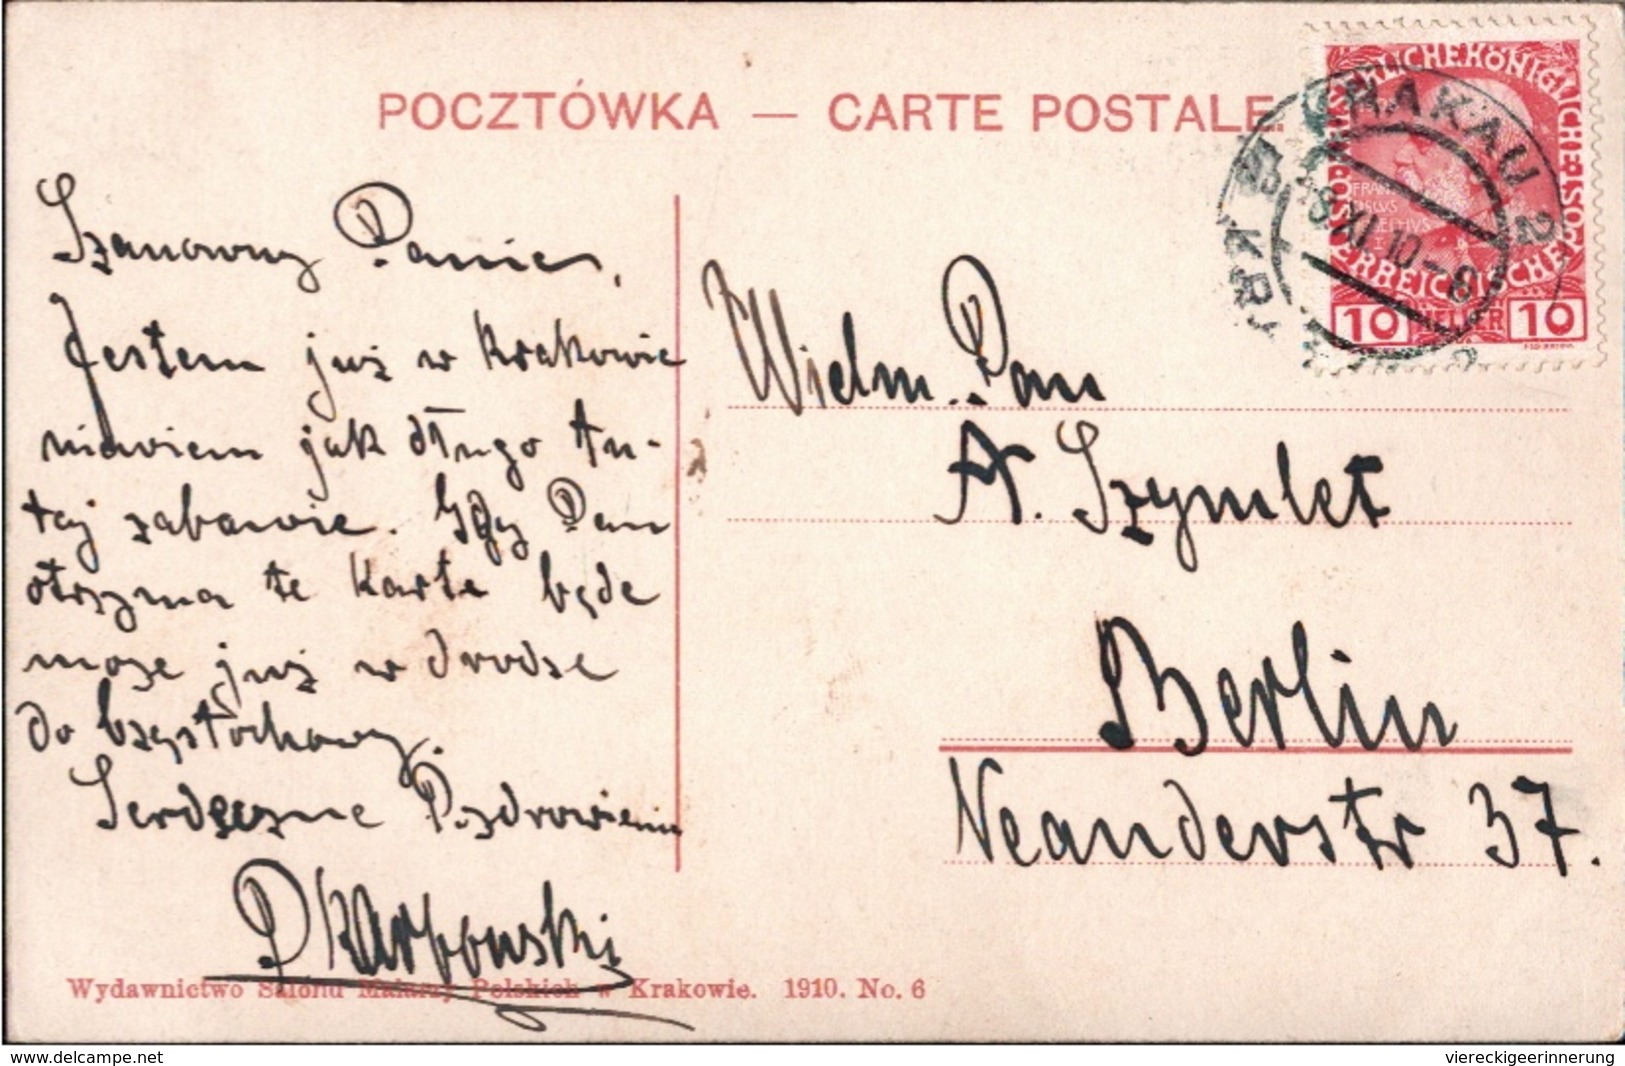 POCZTÓWKA — CARTE POSTALE.
Szanowny Panie,
Jestem już w Krakowie
niewiem jak długo tu-
taj zabawie. Gdy Pan
otrzyma te karte będe
może już w drodze
do Częstochowy.
Serdeczne Pozdrowienia
P Karbowski
Wydawnictwo Salonu Malarzy Polskich w Krakowie. 1910. No. 6
KAISERLICHE KÖNIGLICHE
ÖSTERREICHISCHE POST
10 HELLER 10
KRAKAU 2
8 XI 10-8
Wielm. Pan
A. Szymlet
Berlin
Neanderstr 37.
delcampe.net
viereckigeerinnerung